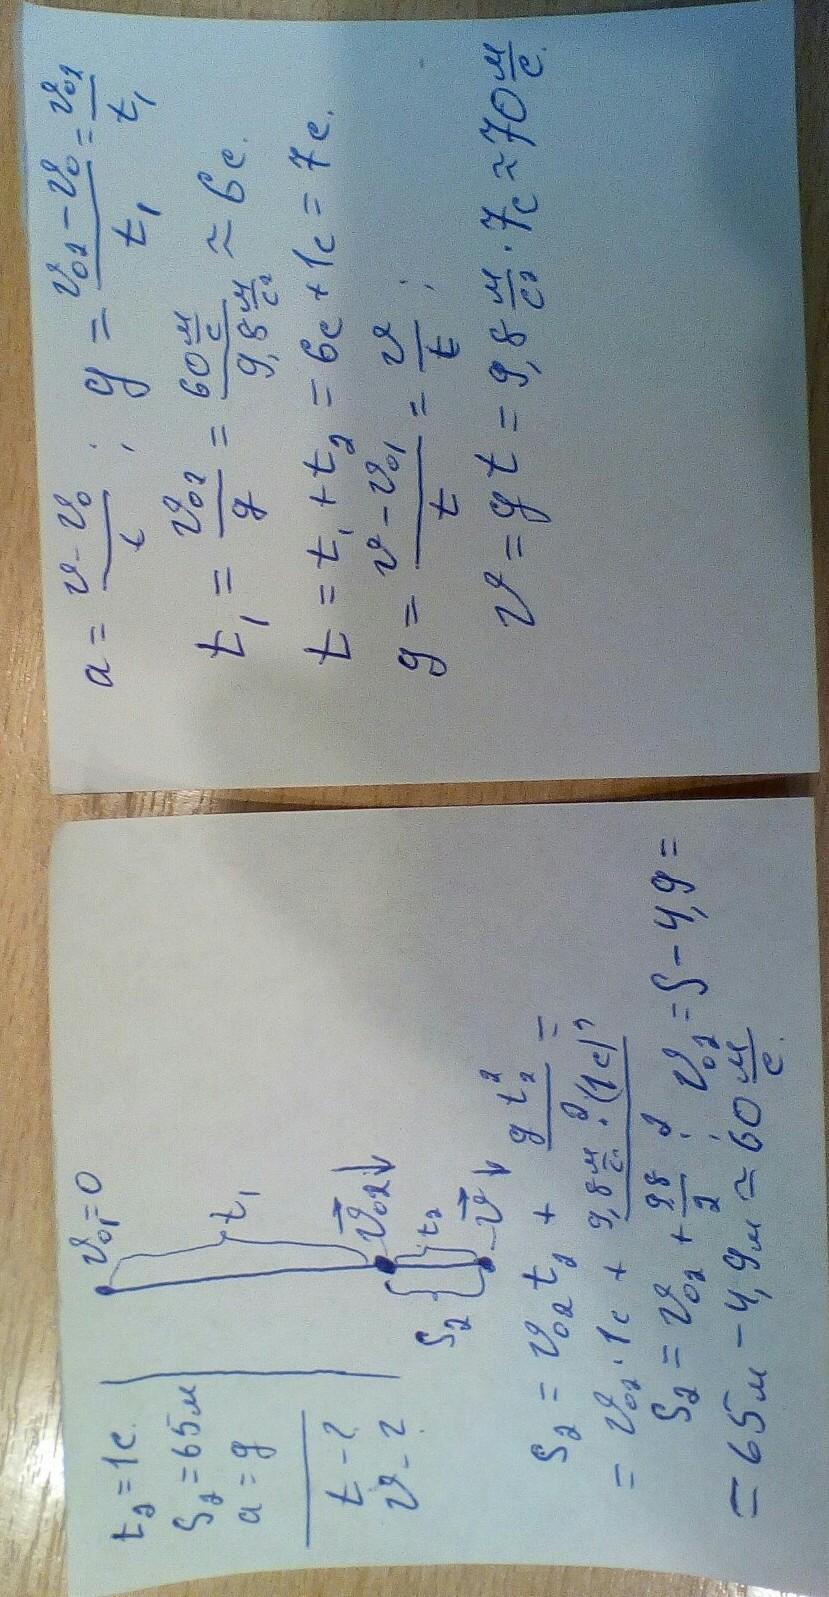 t₂ = 1с.
S₂ = 65м
a = g
t - ?
v - ?
v₀₁ = 0
t₁
v₀₂
S₂
t₂
v
S₂ = v₀₂ t₂ + g t₂² / 2 =
= v₀₂ · 1с + 9,8 м/с² · (1с)² / 2
S₂ = v₀₂ + 9,8 / 2 ; v₀₂ = S - 4,9 =
= 65м - 4,9м ≈ 60 м/с.
a = v - v₀ / t ; g = v₀₂ - v₀ / t₁ = v₀₂ / t₁
t₁ = v₀₂ / g = 60 м/с / 9,8 м/с² ≈ 6с.
t = t₁ + t₂ = 6с + 1с = 7с.
g = v - v₀₁ / t = v / t ;
v = g t = 9,8 м/с² · 7с ≈ 70 м/с.